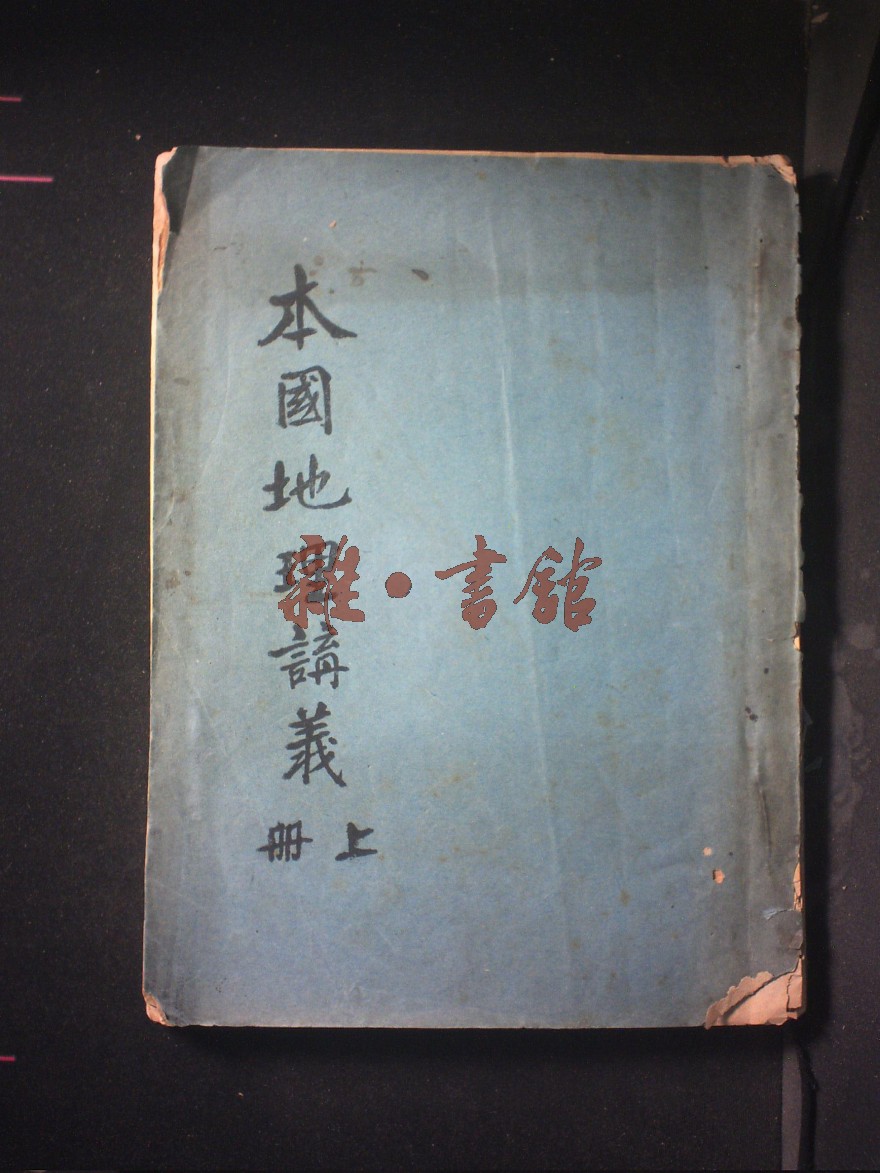 本國地理講義
上册
雜·書館